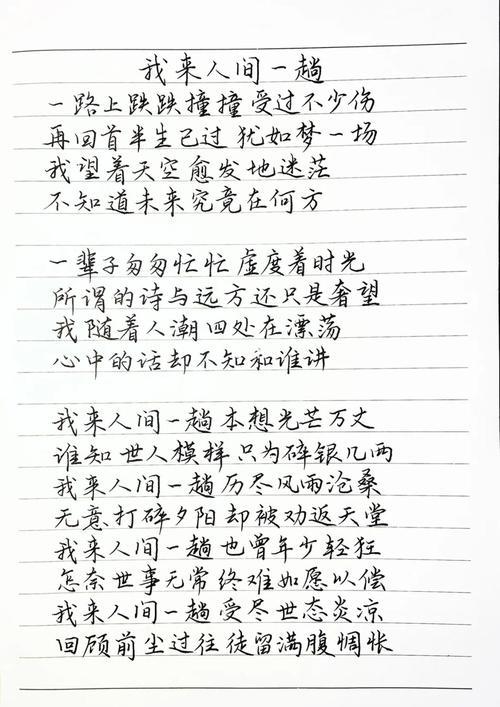 我来人间一趟
一路上跌跌撞撞 受过不少伤
再回首半生已过 犹如梦一场
我望着天空愈发地迷茫
不知道未来究竟在何方
一辈子匆匆忙忙 虚度着时光
所谓的诗与远方还只是奢望
我随着人潮四处在漂荡
心中的话却不知和谁讲
我来人间一趟 本想光芒万丈
谁知世人模样 只为碎银几两
我来人间一趟 历尽风雨沧桑
无意打碎夕阳 却被劝返天堂
我来人间一趟 也曾年少轻狂
怎奈世事无常 终难如愿以偿
我来人间一趟 受尽世态炎凉
回顾前尘过往 徒留满腹惆怅